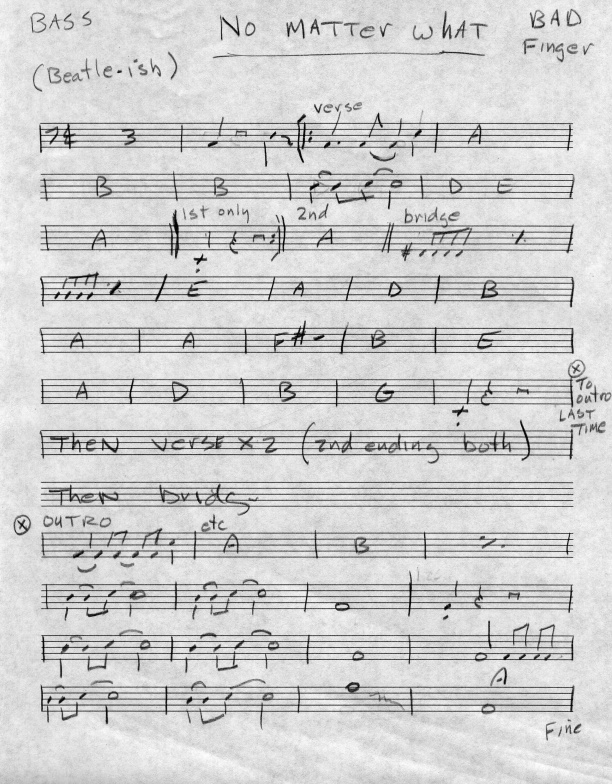 BASS No MATTer what BAD
Finger
(Beatle-ish)
verse
3 A
B B D E
1st only 2nd bridge
A A
E A D B
A A F#- B E
A D B G To
outro
LAST
TIME
Then verse x 2 (2nd ending both)
Then bridg
OUTRO etc
A B
A
Fine